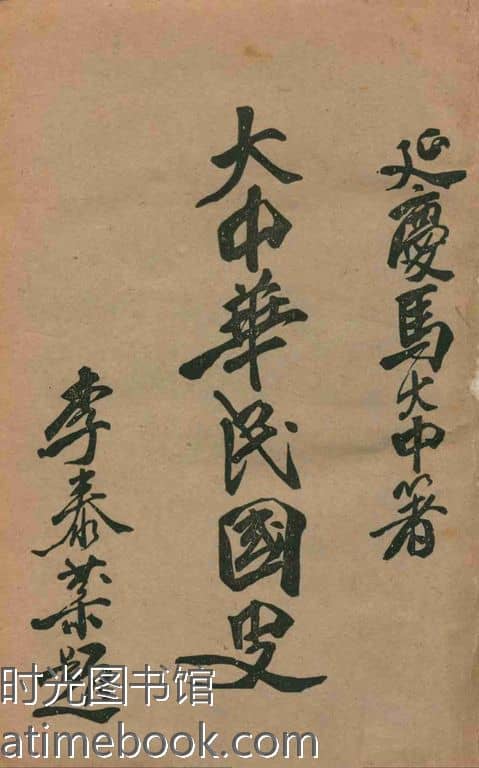 延慶馬大中著
大中華民國史
李泰棻題
时光图书馆
atimebook.com